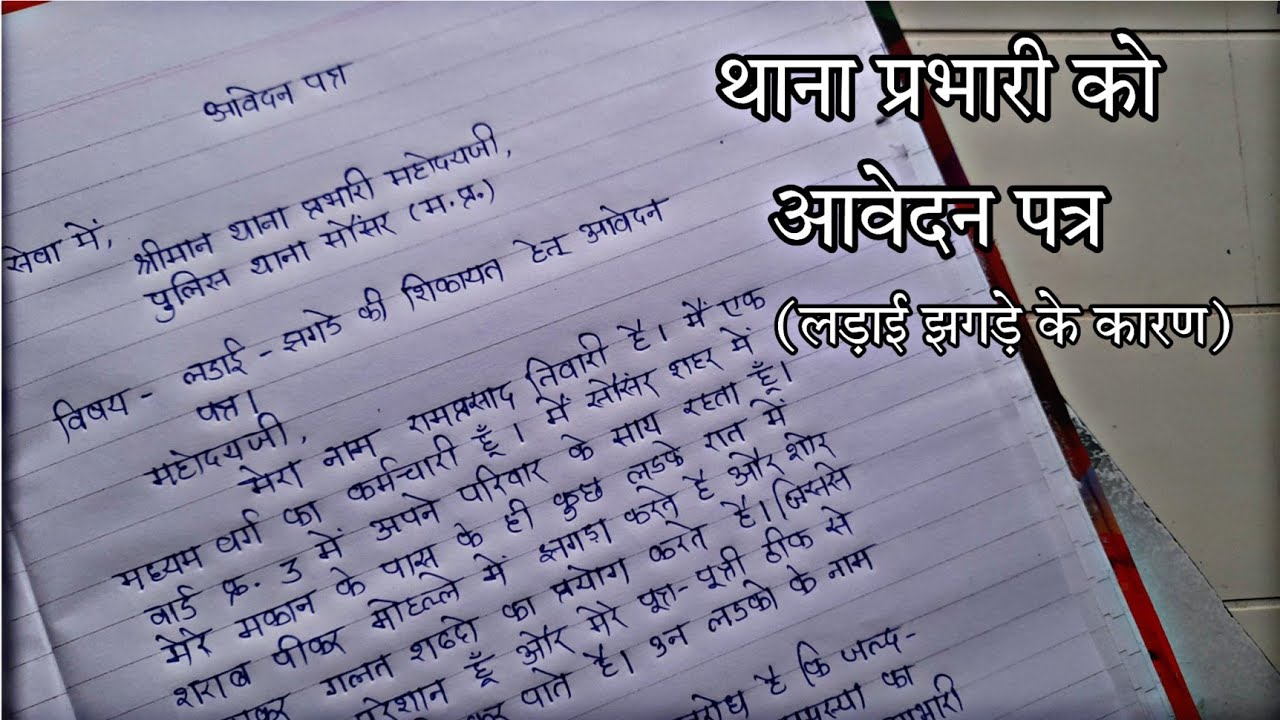 आवेदन पत्र
सेवा में,
श्रीमान थाना प्रभारी महोदयजी,
पुलिस थाना सौंसर (म.प्र.)
विषय - लडाई - झगडे की शिकायत हेतू आवेदन
पत्र।
महोदयजी,
मेरा नाम रामप्रसाद तिवारी है। मैं एक
मध्यम वर्ग का कर्मचारी हूँ। मैं सौसंर शहर में
वार्ड क्र. 3 में अपने परिवार के साथ रहता हूँ।
मेरे मकान के पास के ही कुछ लडके रात में
शराब पीकर मोहल्ले में झगडा करते है और शोर
गलत शब्दो का प्रयोग करते है। जिससे
परेशान हूँ और मेरे पूत्र-पूत्री ठीक से
पाते है। उन लडको के नाम
है कि जल्द-
का
थाना प्रभारी को
आवेदन पत्र
(लड़ाई झगड़े के कारण)